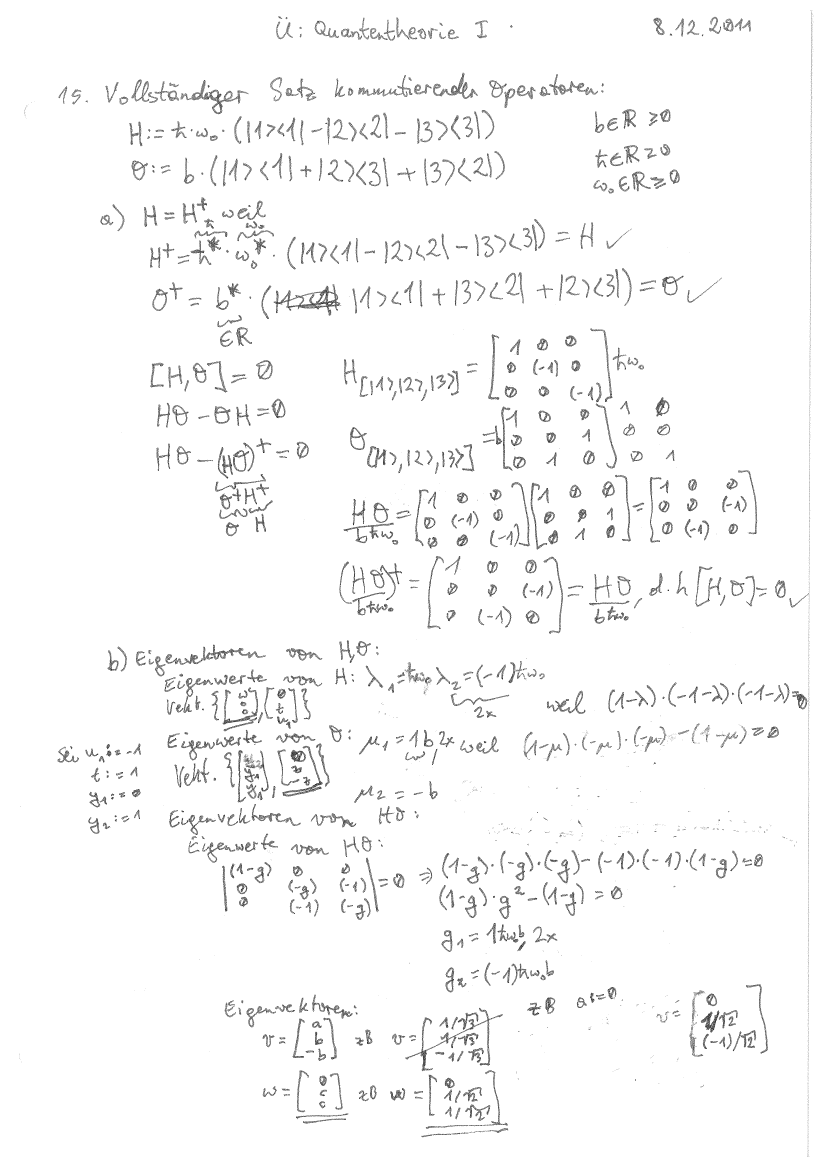 Ü: Quantentheorie I 8.12.2011
15. Vollständiger Satz kommutierender Operatoren:
H := ħ·ω₀·(|1><1| - |2><2| - |3><3|) b∈ℝ ≥0
θ := b·(|1><1| + |2><3| + |3><2|) ħ∈ℝ≥0
ω₀∈ℝ≥0
a) H = H⁺, weil
H⁺ = ħ*·ω₀*·(|1><1| - |2><2| - |3><3|) = H ✓
θ⁺ = b*·(|1><1| + |3><2| + |2><3|) = θ ✓
∈ℝ
[H,θ] = 0 H[|1>,|2>,|3>] = [1 0 0; 0 (-1) 0; 0 0 (-1)] ħω₀
Hθ - θH = 0 θ[|1>,|2>,|3>] = b[1 0 0; 0 0 1; 0 1 0] 1 0 0 0 0 1
Hθ - (Hθ)⁺ = 0
θ⁺H⁺
θ H
Hθ/bħω₀ = [1 0 0; 0 (-1) 0; 0 0 (-1)] [1 0 0; 0 0 1; 0 1 0] = [1 0 0; 0 0 (-1); 0 (-1) 0]
(Hθ)⁺/bħω₀ = [1 0 0; 0 0 (-1); 0 (-1) 0] = Hθ/bħω₀, d.h [H,θ] = 0 ✓
b) Eigenvektoren von H,θ:
Eigenwerte von H: λ₁ = ħω₀ λ₂ = (-1)ħω₀ weil (1-λ)·(-1-λ)·(-1-λ)=0
2x
Vekt. {[ω; 0; 0], [0; t; u₁]}
Sei u₁ := -1
Eigenwerte von θ: μ₁ = 1b, 2x weil (1-μ)·(-μ)·(-μ) - (1-μ) = 0
t := 1
Vekt.
y₁ := 0
μ₂ = -b
y₂ := 1
Eigenvektoren von Hθ:
Eigenwerte von Hθ:
|(1-g) 0 0; 0 (-g) (-1); 0 (-1) (-g)| = 0 ⇒ (1-g)·(-g)·(-g) - (-1)·(-1)·(1-g)=0
(1-g)·g² - (1-g) = 0
g₁ = 1ħω₀b, 2x
g₂ = (-1)ħω₀b
Eigenvektoren:
v = [a; b; -b] zB v = [1/√3; 1/√3; -1/√3] zB a:=0 v = [0; 1/√2; (-1)/√2]
w = [0; c; c] zB w = [0; 1/√2; 1/√2]